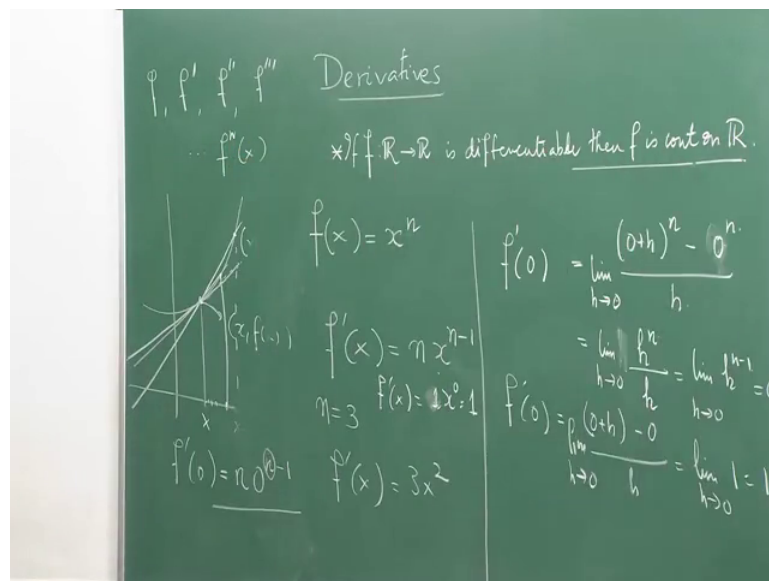 f, f', f'', f'''
Derivatives
... fⁿ(x)
*If f: ℝ→ℝ is differentiable then f is cont on ℝ.
f(x) = xⁿ
f'(x) = n xⁿ⁻¹
n=3 f'(x) = 1x⁰=1
f'(0) = n 0ⁿ⁻¹
f'(x) = 3x²
(x, f(x))
x
f'(0) = lim h→0 ((0+h)ⁿ - 0ⁿ)/h
= lim h→0 hⁿ/h = lim h→0 hⁿ⁻¹ =
f'(0) = lim h→0 ((0+h) - 0)/h = lim h→0 1 = 1